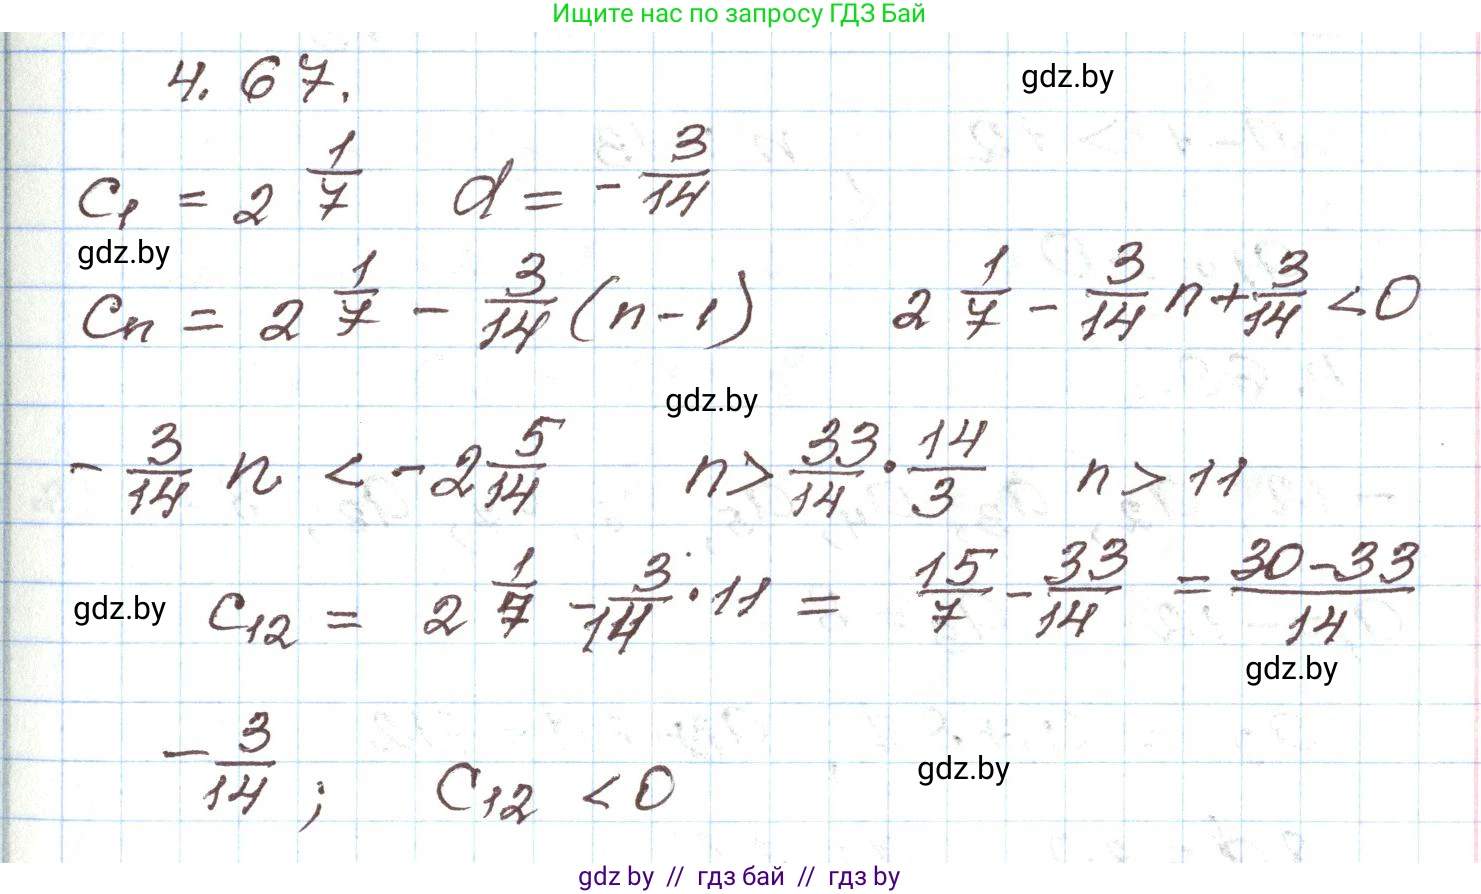 Ищите нас по запросу ГДЗ Бай
4.67.
gdz.by
c₁ = 2 1/7 d = - 3/14
gdz.by
cₙ = 2 1/7 - 3/14 (n-1) 2 1/7 - 3/14 n + 3/14 < 0
gdz.by
- 3/14 n < -2 5/14 n > 33/14 · 14/3 n > 11
gdz.by
c₁₂ = 2 1/7 - 3/14 · 11 = 15/7 - 33/14 = (30-33)/14
gdz.by
- 3/14 ; c₁₂ < 0
gdz.by
gdz by // гдз бай // гдз by